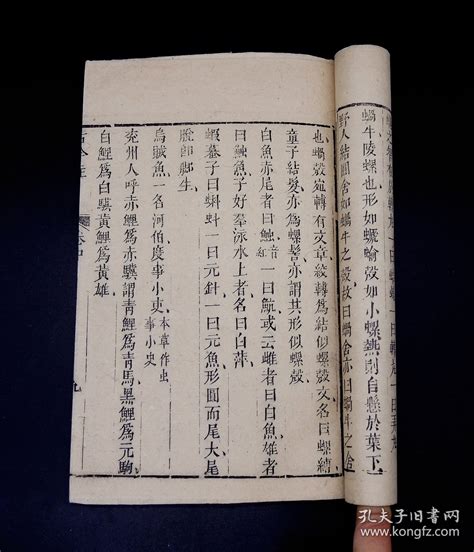 蝸牛陵螺也形如蠣蝓殼如小螺熱則自懸於葉下
野人結圓舍如蝸牛之殼故曰蝸舍亦曰蝸牛之舍
也蝸殼宛轉有文章絞轉爲結似螺殼文名曰螺縛
童子結髮亦爲螺髻亦謂其形似螺殼
白魚赤尾者曰䱻一曰魧或云雌者曰白魚雄者
曰䱻魚子好羣泳水上者名曰白萍
蝦蟇子曰蝌蚪一曰元針一曰元魚形圓而尾大尾
脫即腳生
烏賊魚一名河伯度事小吏本草作虫事小史
兗州人呼赤鯉爲赤驥謂靑鯉爲靑馬黑鯉爲元駒
白鯉爲白驥黃鯉爲黃雄
古今注
九
孔夫子旧书网
www.kongfz.com